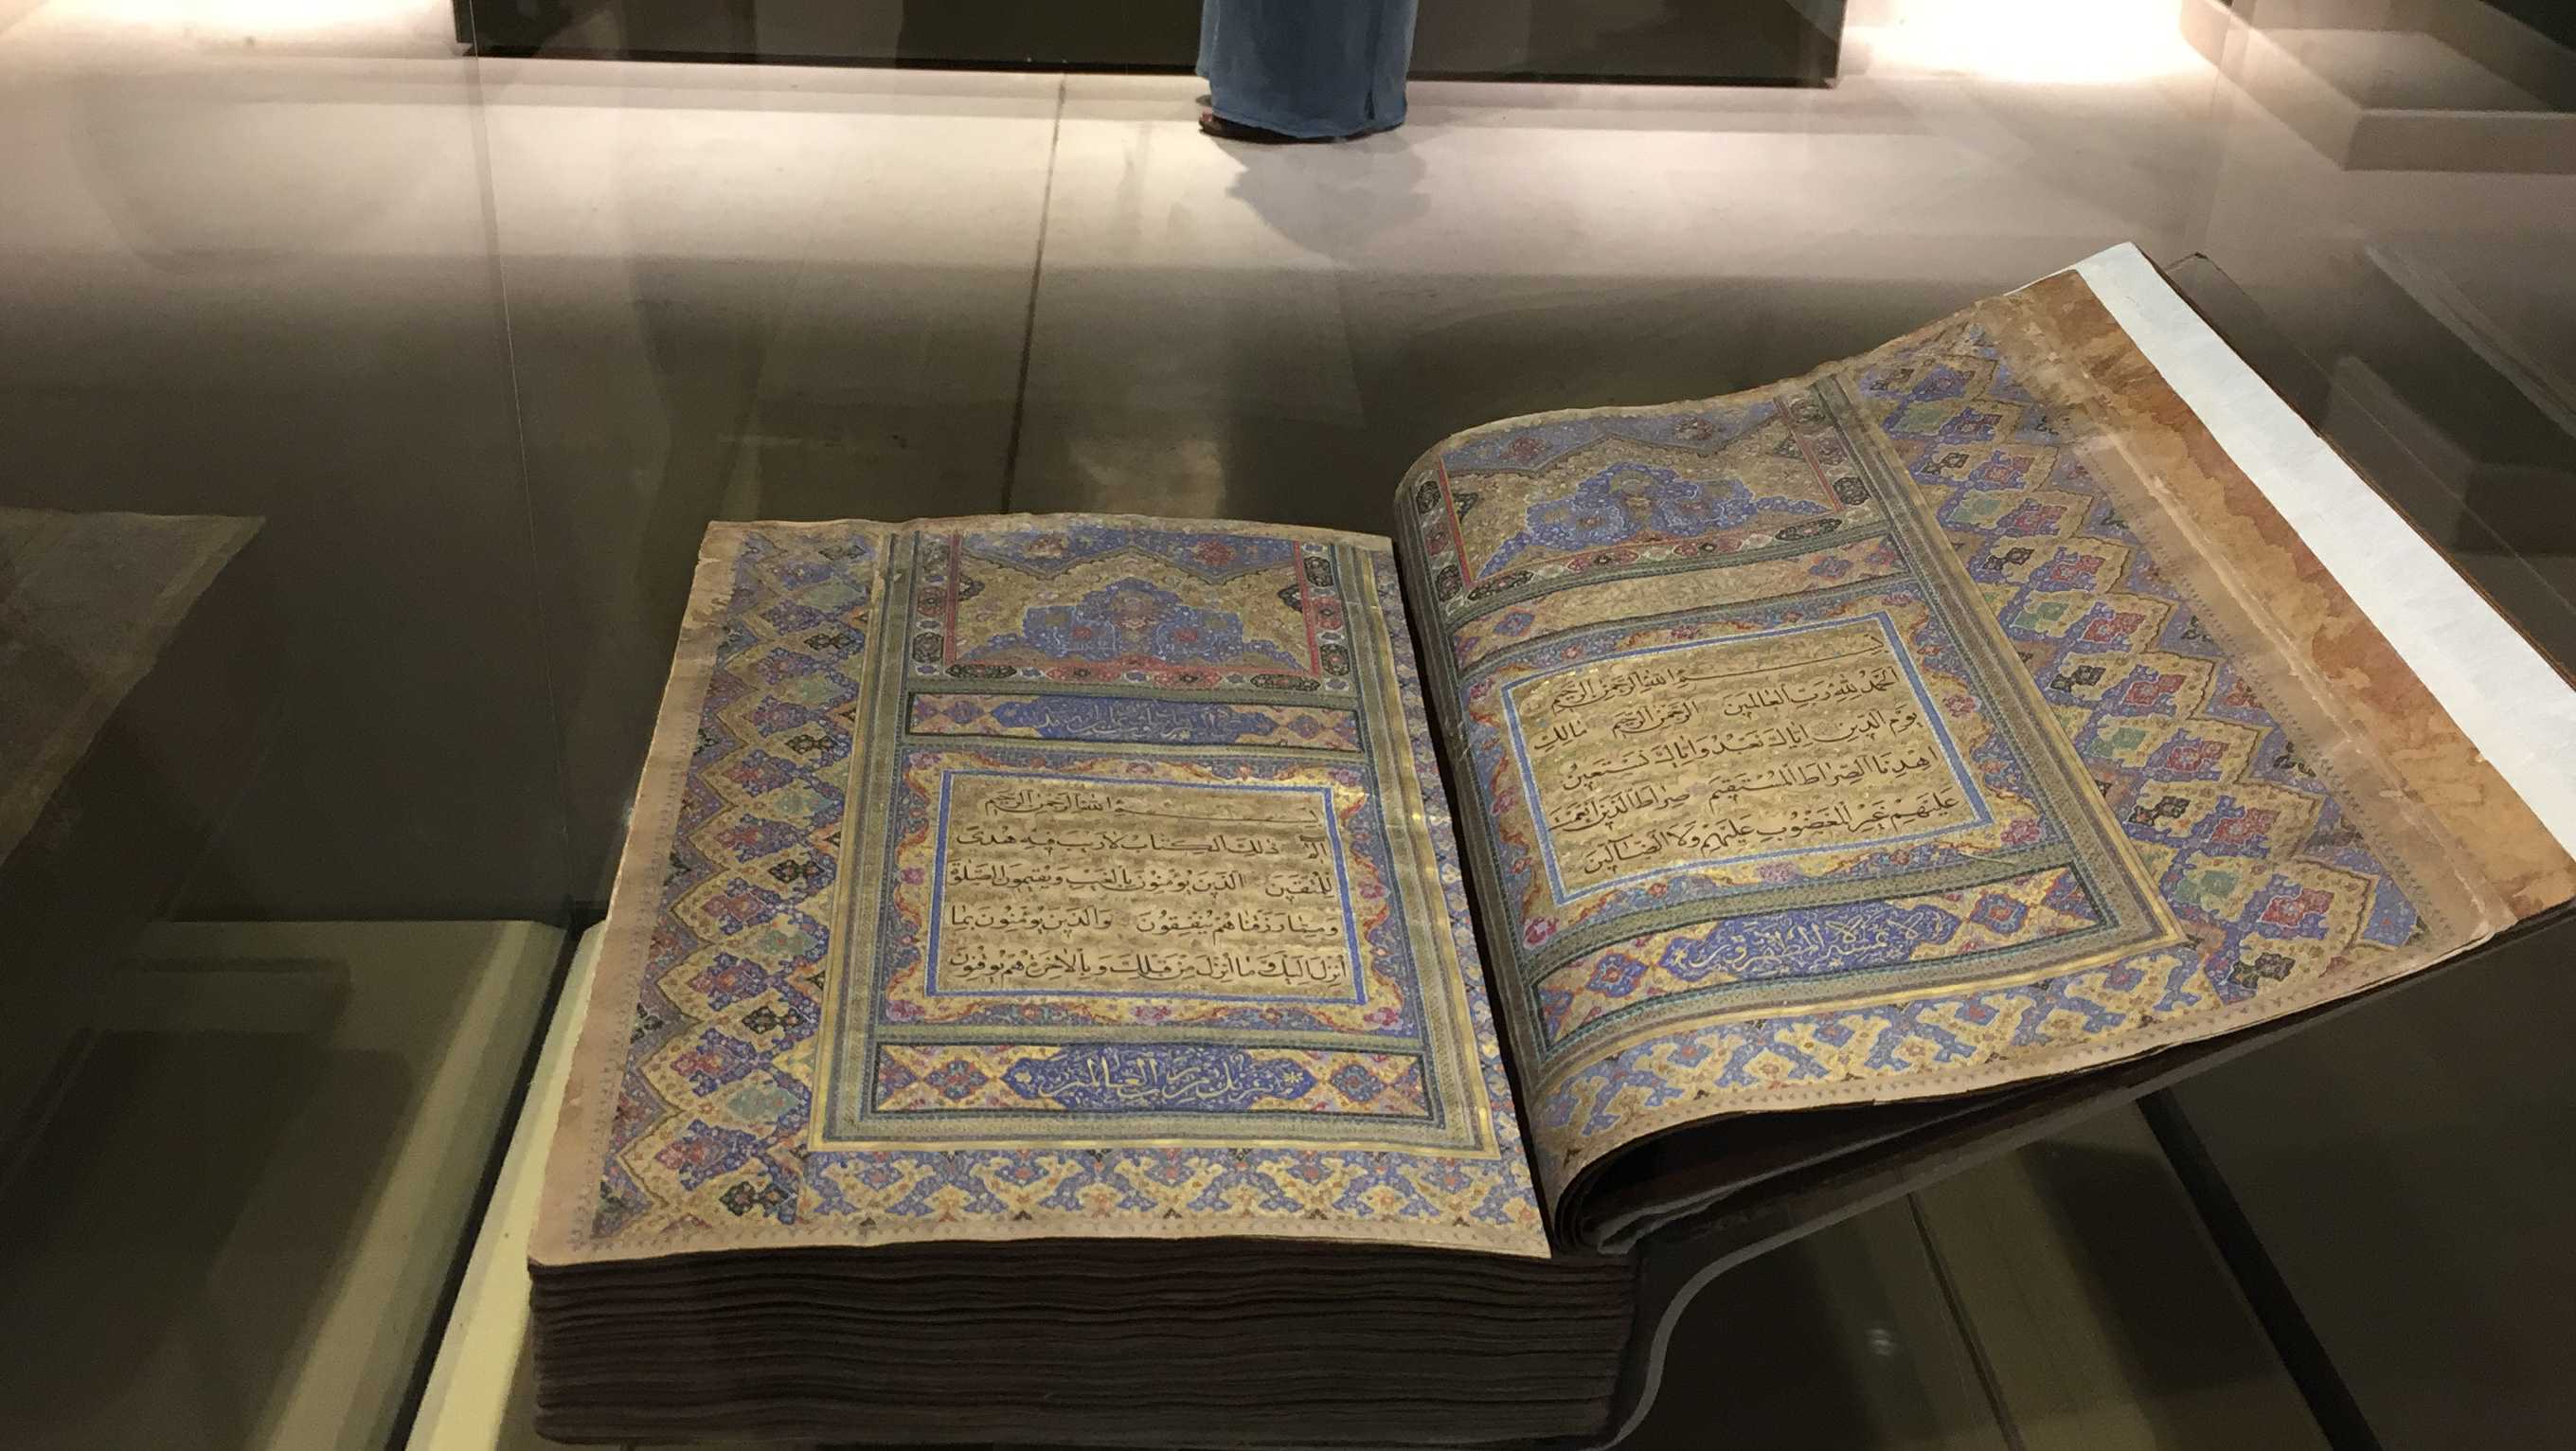 بسم الله الرحمن الرحيم
الحمد لله رب العالمين الرحمن الرحيم مالك
يوم الدين اياك نعبد واياك نستعين
اهدنا الصراط المستقيم صراط الذين انعمت
عليهم غير المغضوب عليهم ولا الضالين
لا يمسه الا المطهرون
بسم الله الرحمن الرحيم
الم ذلك الكتاب لا ريب فيه هدى
للمتقين الذين يؤمنون بالغيب ويقيمون الصلوة
ومما رزقناهم ينفقون والذين يؤمنون بما
انزل اليك وما انزل من قبلك وبالاخرة هم يوقنون
تنزيل من رب العالمين